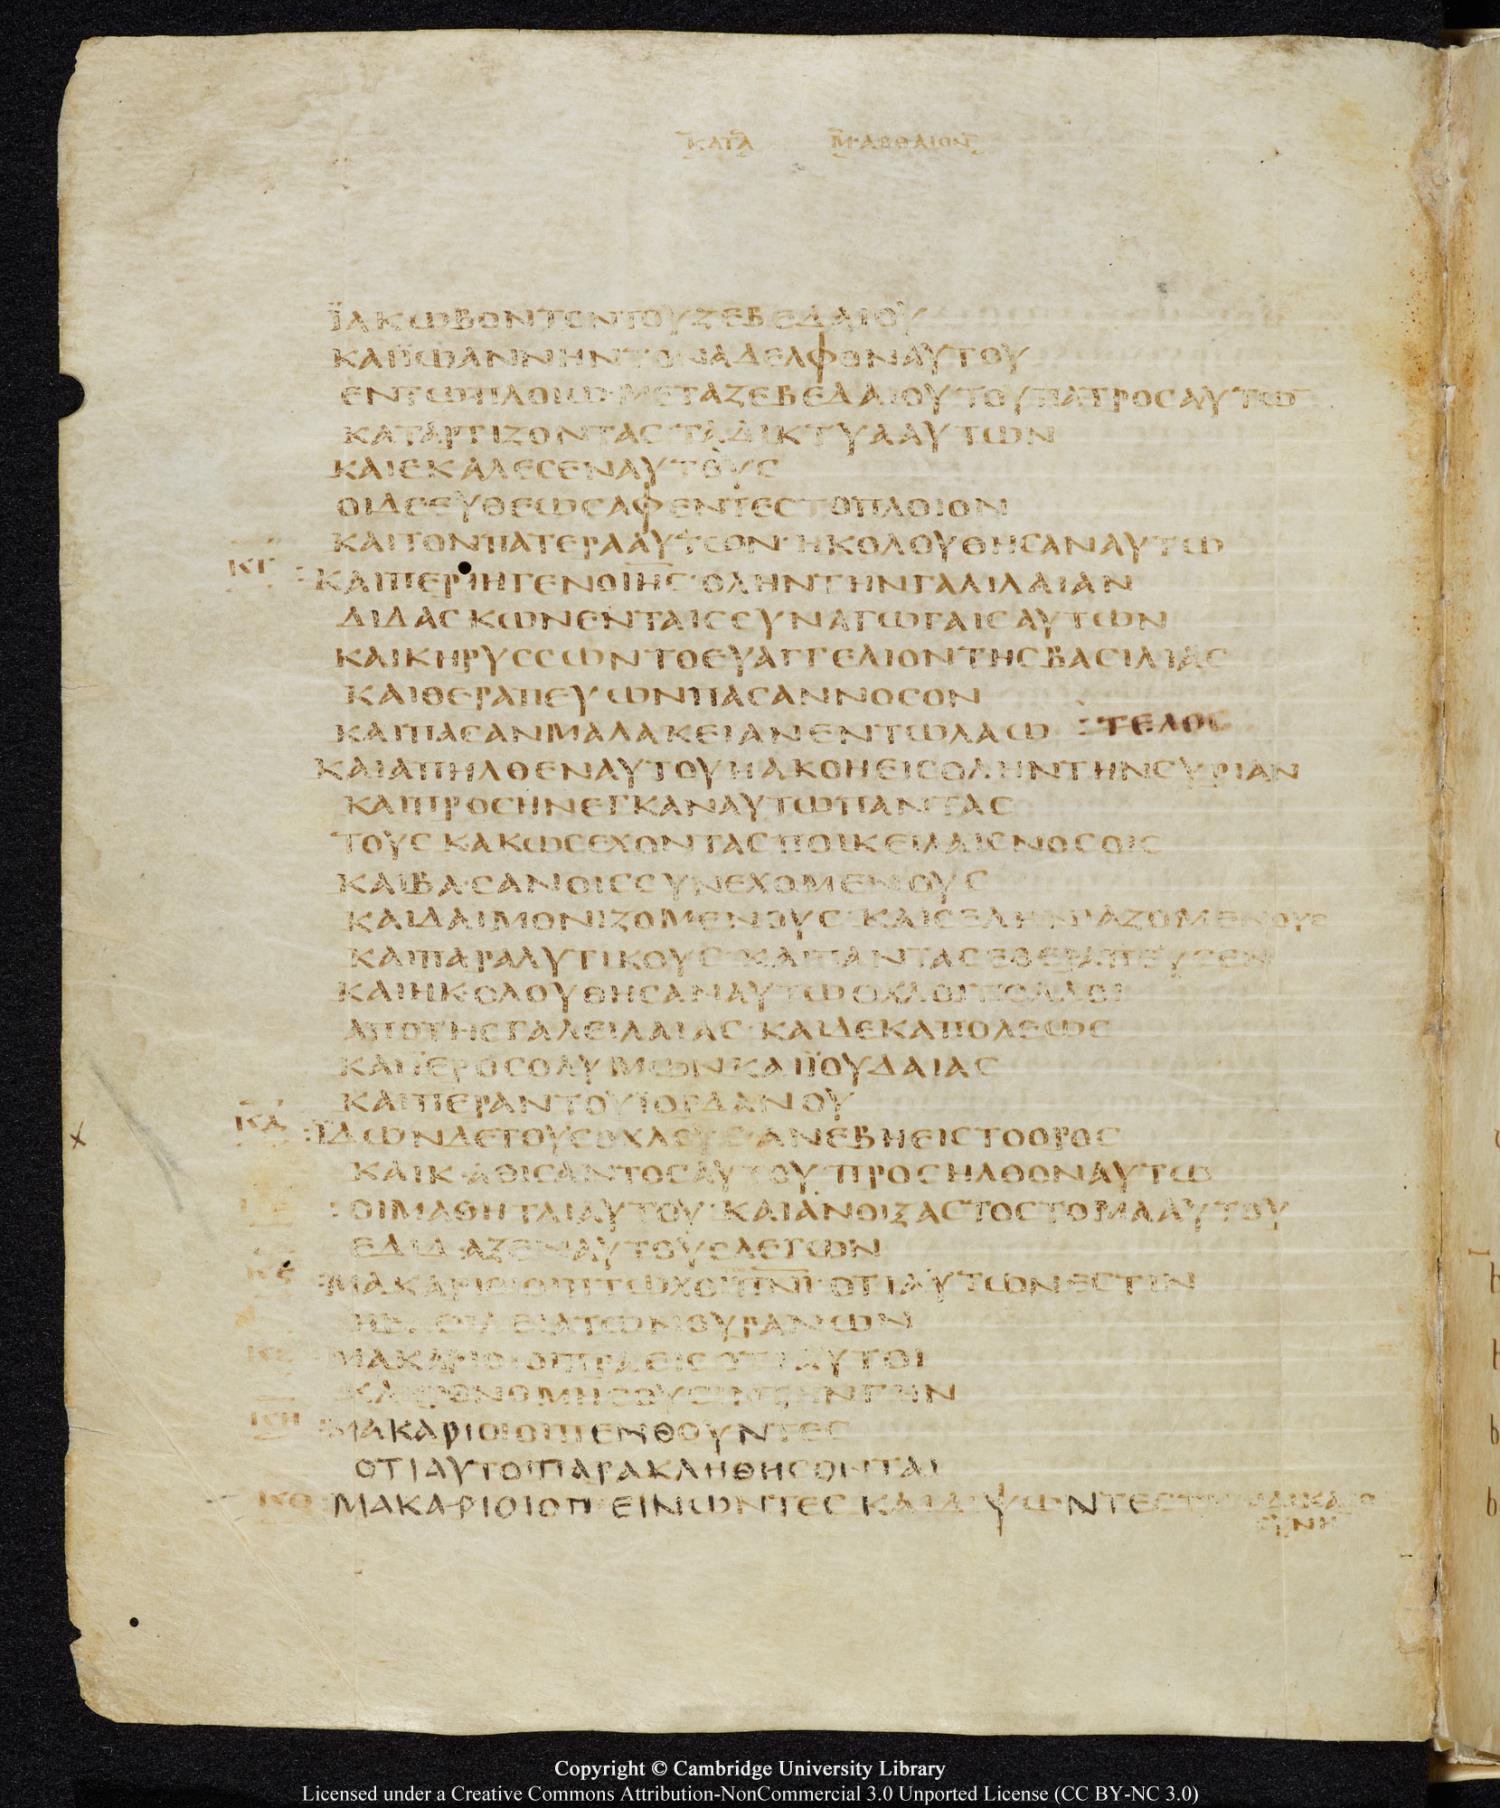 ΚΑΤΑ ΜΑΘΘΑΙΟΝ
ΪΑΚΩΒΟΝΤΟΝΤΟΥΖΕΒΕΔΑΙΟΥ
ΚΑΙΪΩΑΝΝΗΝΤΟΝΑΔΕΛΦΟΝΑΥΤΟΥ
ΕΝΤΩΠΛΟΙΩ·ΜΕΤΑΖΕΒΕΔΑΙΟΥΤΟΥΠΑΤΡΟCΑΥΤΩ̅
ΚΑΤΑΡΤΙΖΟΝΤΑCΤΑΔΙΚΤΥΑΑΥΤΩΝ
ΚΑΙΕΚΑΛΕCΕΝΑΥΤΟΥC
ΟΙΔΕΕΥΘΕΩCΑΦΕΝΤΕCΤΟΠΛΟΙΟΝ
ΚΑΙΤΟΝΠΑΤΕΡΑΑΥΤΩΝ·ΗΚΟΛΟΥΘΗCΑΝΑΥΤΩ
ΚΓ :ΚΑΙΠΕΡΙΗΓΕΝΟΙΗC·ΟΛΗΝΤΗΝΓΑΛΙΛΑΙΑΝ
ΔΙΔΑCΚΩΝΕΝΤΑΙCCΥΝΑΓΩΓΑΙCΑΥΤΩΝ
ΚΑΙΚΗΡΥCCΩΝΤΟΕΥΑΓΓΕΛΙΟΝΤΗCΒΑCΙΛΙΑC
ΚΑΙΘΕΡΑΠΕΥΩΝΠΑCΑΝΝΟCΟΝ
ΚΑΙΠΑCΑΝΜΑΛΑΚΕΙΑΝΕΝΤΩΛΑΩ :ΤΕΛΟC
ΚΑΙΑΠΗΛΘΕΝΑΥΤΟΥΗΑΚΟΗΕΙCΟΛΗΝΤΗΝCΥΡΙΑΝ
ΚΑΙΠΡΟCΗΝΕΓΚΑΝΑΥΤΩΠΑΝΤΑC
ΤΟΥCΚΑΚΩCΕΧΟΝΤΑCΠΟΙΚΕΙΛΑΙCΝΟCΟΙC
ΚΑΙΒΑCΑΝΟΙCCΥΝΕΧΟΜΕΝΟΥC
ΚΑΙΔΑΙΜΟΝΙΖΟΜΕΝΟΥC·ΚΑΙCΕΛΗΝΙΑΖΟΜΕΝΟΥC
ΚΑΙΠΑΡΑΛΥΤΙΚΟΥC·ΚΑΙΠΑΝΤΑCΕΘΕΡΑΠΕΥCΕΝ
ΚΑΙΗΚΟΛΟΥΘΗCΑΝΑΥΤΩΟΧΛΟΙΠΟΛΛΟΙ
ΑΠΟΤΗCΓΑΛΕΙΛΑΙΑC·ΚΑΙΔΕΚΑΠΟΛΕΩC
ΚΑΙΪΕΡΟCΟΛΥΜΩΝΚΑΙΪΟΥΔΑΙΑC
ΚΑΙΠΕΡΑΝΤΟΥΪΟΡΔΑΝΟΥ
ΚΔ :ΪΔΩΝΔΕΤΟΥCΟΧΛΟΥC·ΑΝΕΒΗΕΙCΤΟΟΡΟC
ΚΑΙΚΑΘΙCΑΝΤΟCΑΥΤΟΥ·ΠΡΟCΗΛΘΟΝΑΥΤΩ
:ΟΙΜΑΘΗΤΑΙΑΥΤΟΥ·ΚΑΙΑΝΟΙΞΑCΤΟCΤΟΜΑΑΥΤΟΥ
ΕΔΙΔΑΞΕΝΑΥΤΟΥCΛΕΓΩΝ
:ΜΑΚΑΡΙΟΙΟΙΠΤΩΧΟΙΠΝΙ·ΟΤΙΑΥΤΩΝΕCΤΙΝ
ΗΒΑCΙΛΕΙΑΤΩΝΟΥΡΑΝΩΝ
ΜΑΚΑΡΙΟΙΟΙΠΡΑΕΙCΟΤΙΑΥΤΟΙ
ΚΛΗΡΟΝΟΜΗCΟΥCΙΝΤΗΝΓΗΝ
ΚΗ ΜΑΚΑΡΙΟΙΟΙΠΕΝΘΟΥΝΤΕC
ΟΤΙΑΥΤΟΙΠΑΡΑΚΛΗΘΗCΟΝΤΑΙ
ΚΘ ΜΑΚΑΡΙΟΙΟΙΠΕΙΝΩΝΤΕCΚΑΙΔΙΨΩΝΤΕCΤΗΝΔΙΚΑΙΟ
CΥΝΗ
Copyright © Cambridge University Library
Licensed under a Creative Commons Attribution-NonCommercial 3.0 Unported License (CC BY-NC 3.0)